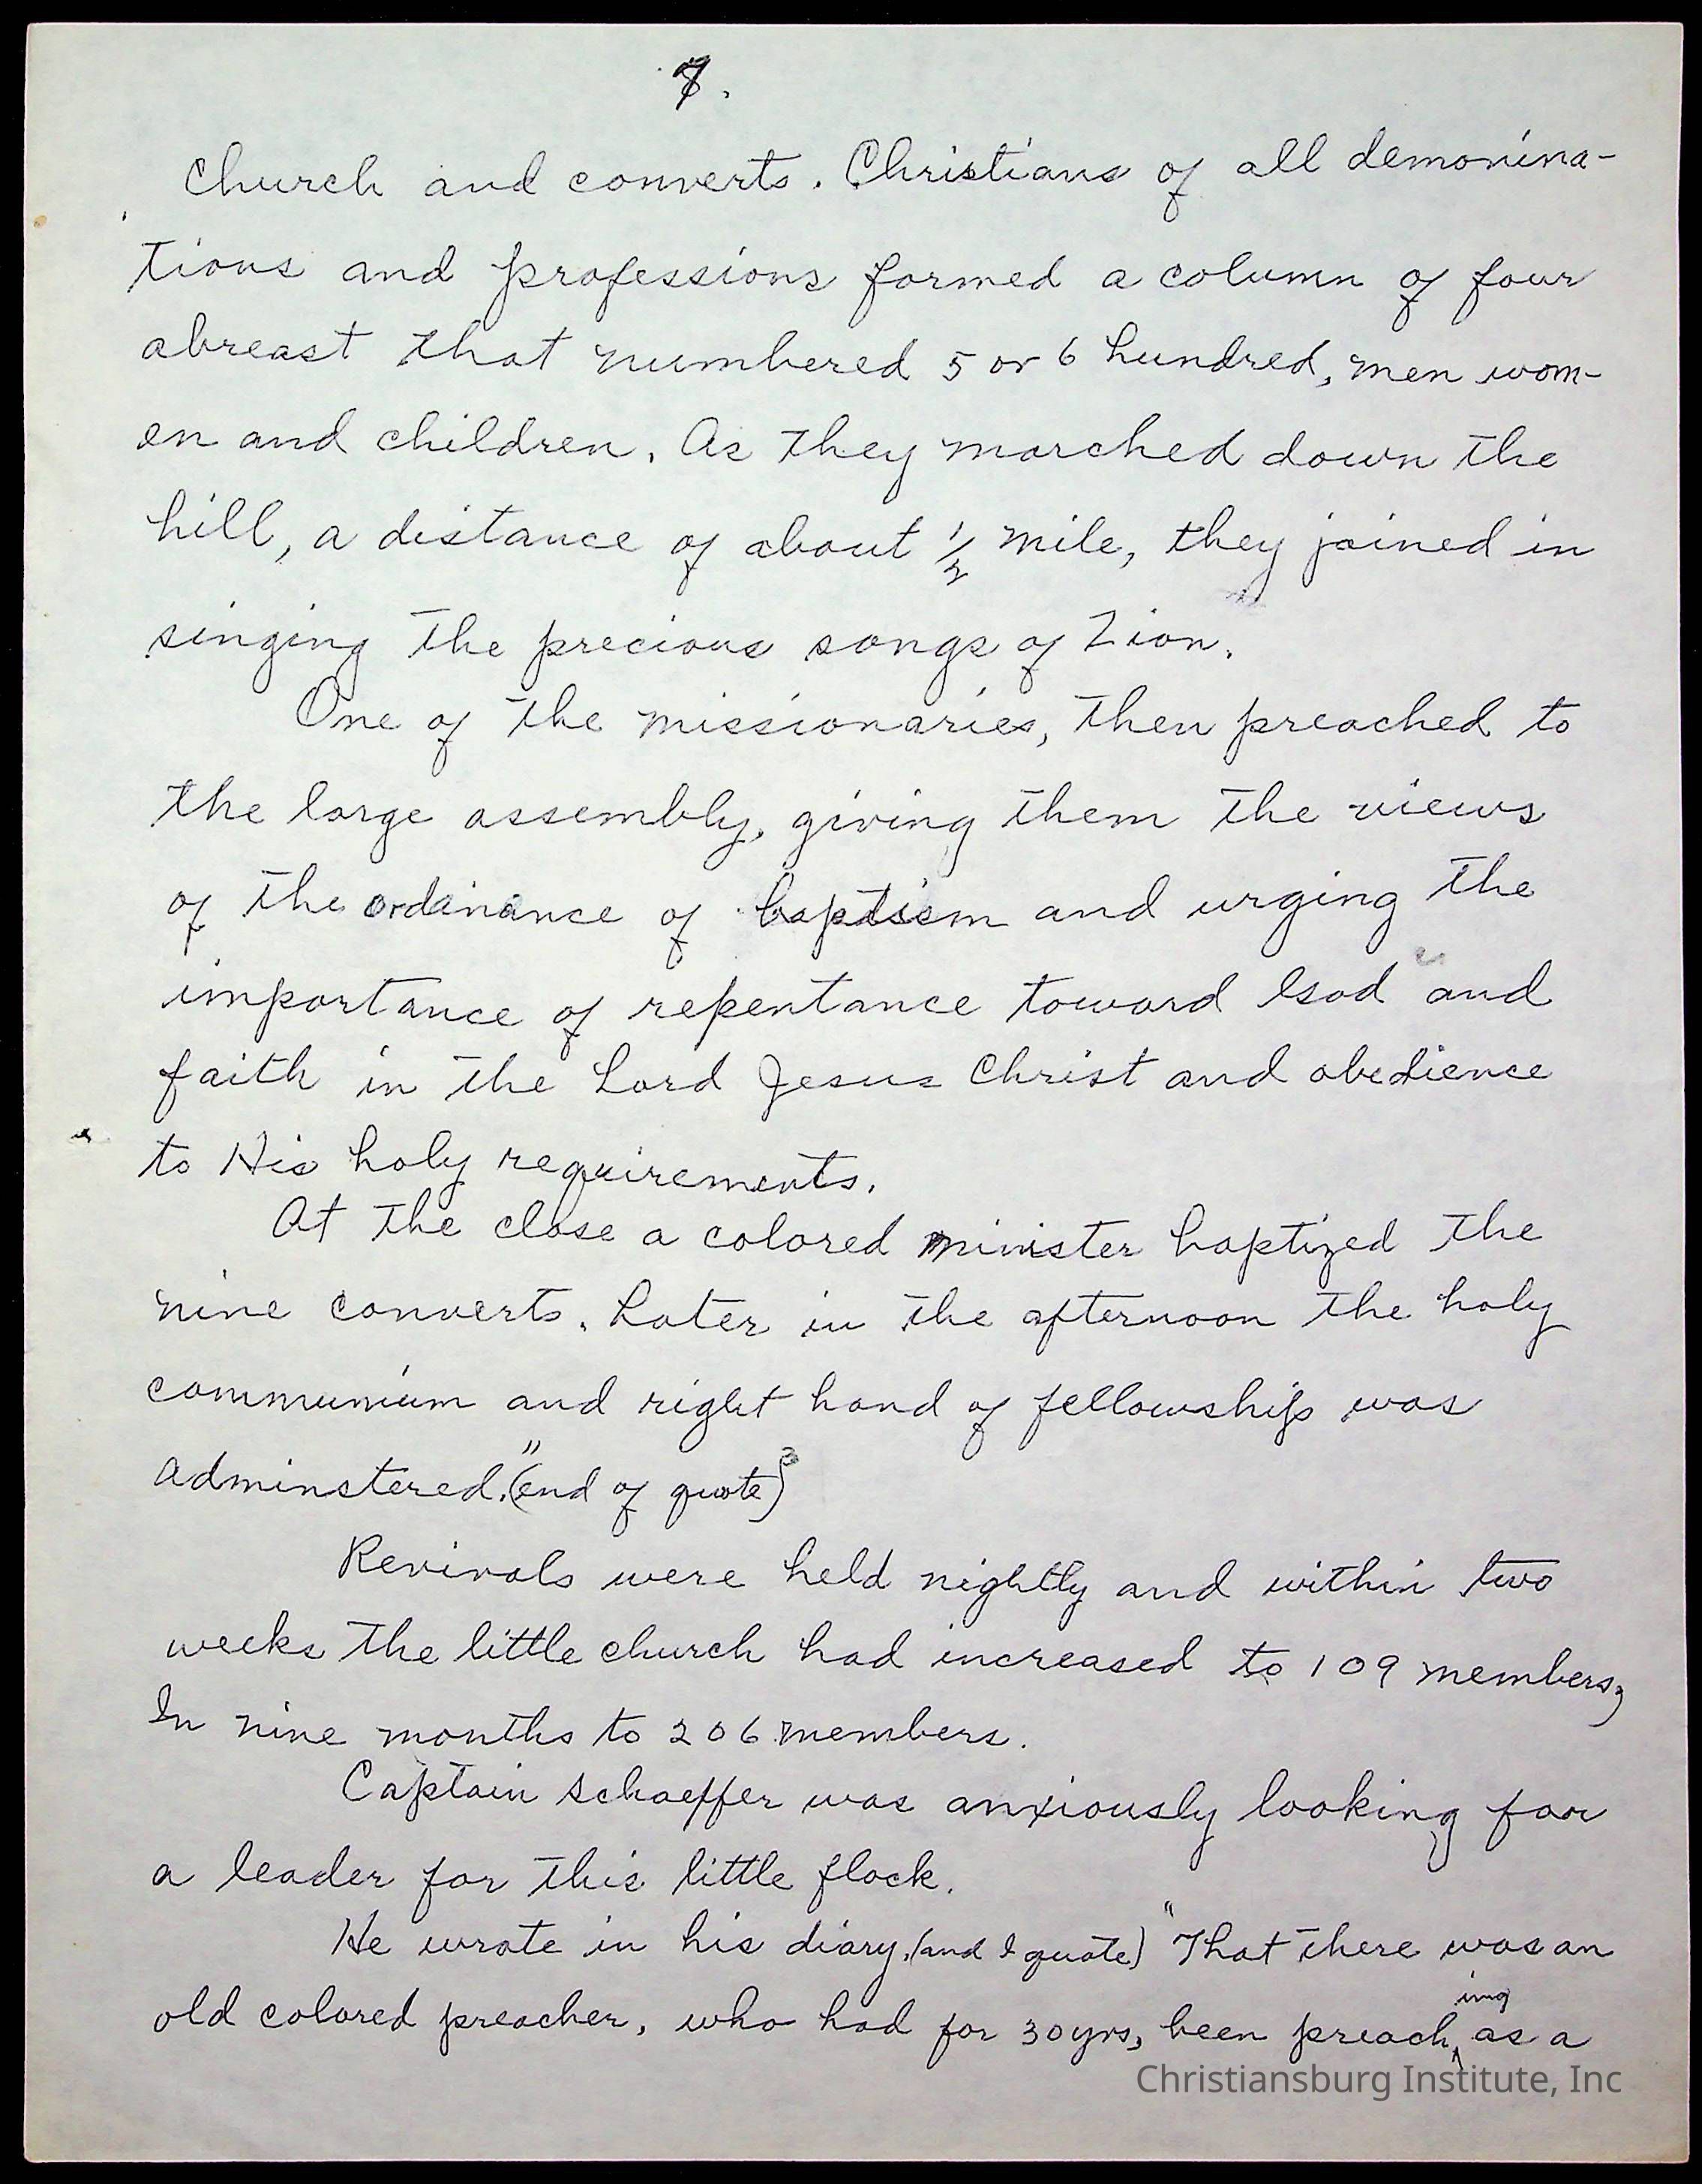 7.
Church and converts. Christians of all demonina-
tions and professions formed a column of four
abreast that numbered 5 or 6 hundred, men wom-
en and children. As they marched down the
hill, a distance of about ½ mile, they joined in
singing the precious songs of Zion.
One of the missionaries, then preached to
the large assembly, giving them the views
of the ordinance of baptism and urging the
importance of repentance toward God and
faith in the Lord Jesus Christ and obedience
to His holy requirements.
At the close a colored minister baptized the
nine converts. Later in the afternoon the holy
communium and right hand of fellowship was
adminstered." (end of quote) 3
Revivals were held nightly and within two
weeks the little church had increased to 109 members,
In nine months to 206 members.
Captain Schaeffer was anxiously looking for
a leader for this little flock.
He wrote in his diary, (and I quote) "That there was an
old colored preacher, who had for 30 yrs, been preaching as a
Christiansburg Institute, Inc